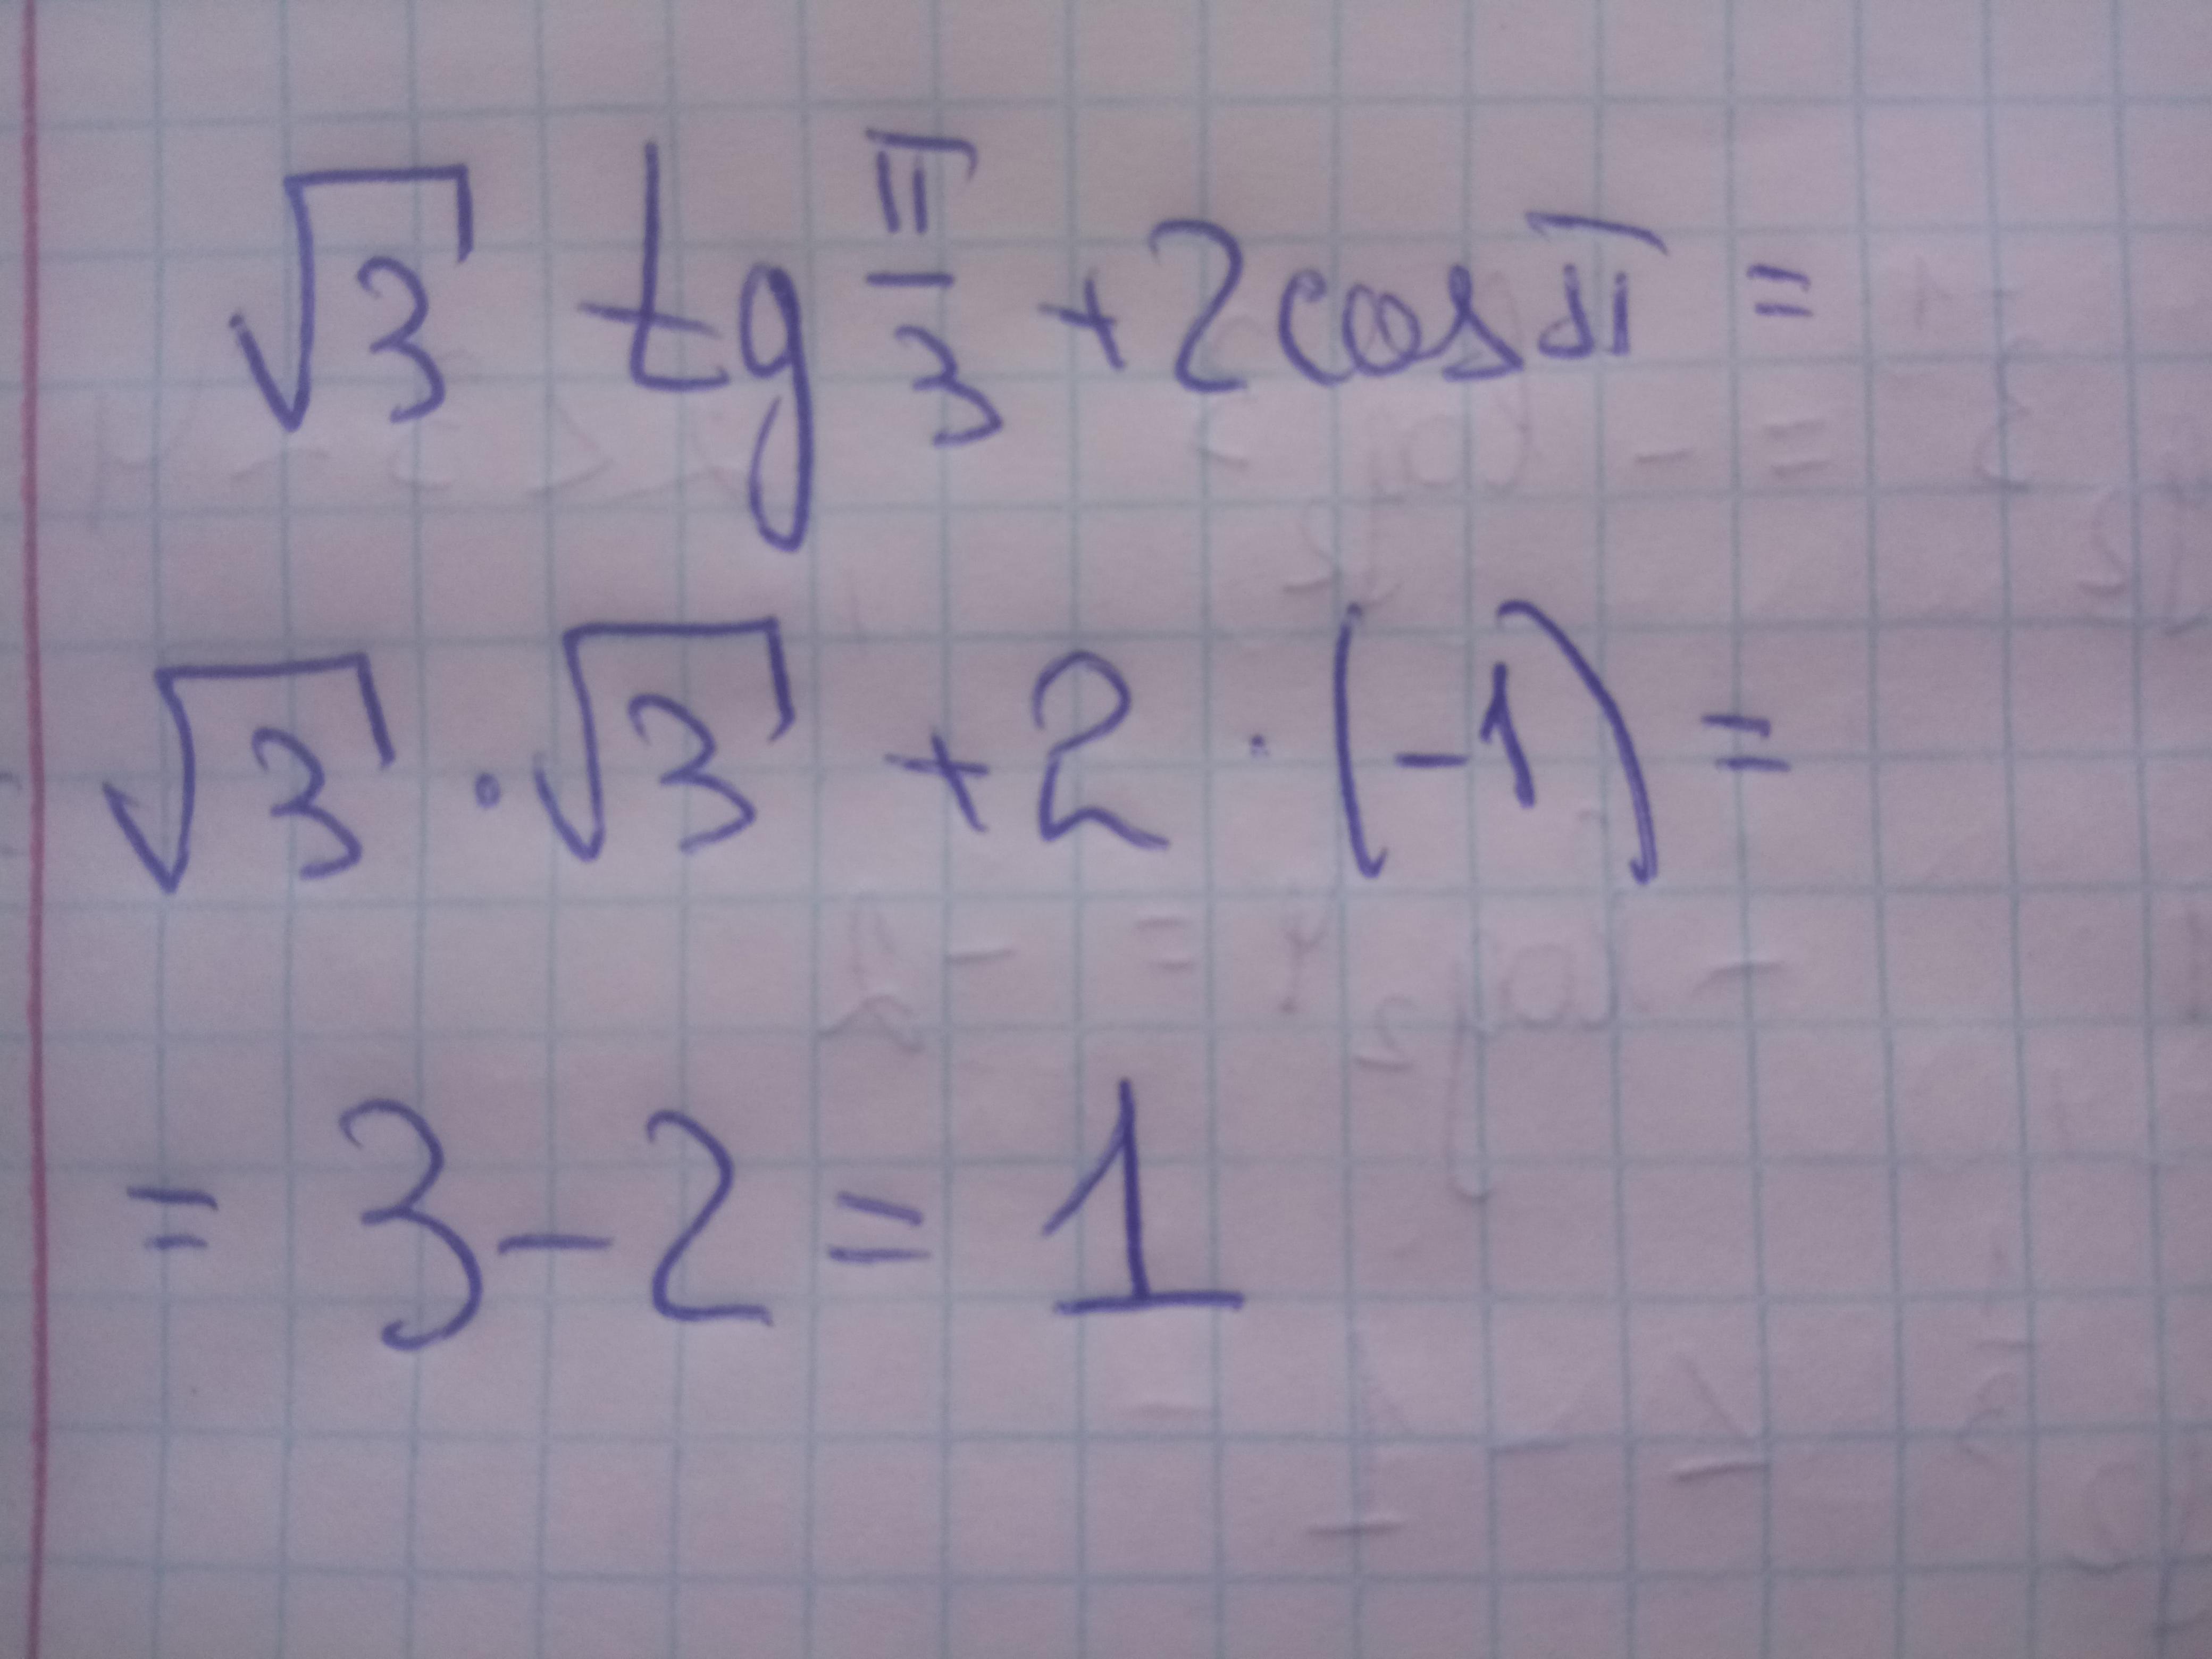 √3 tg π/3 + 2cosπ =
√3 · √3 + 2 · (-1) =
= 3 - 2 = 1